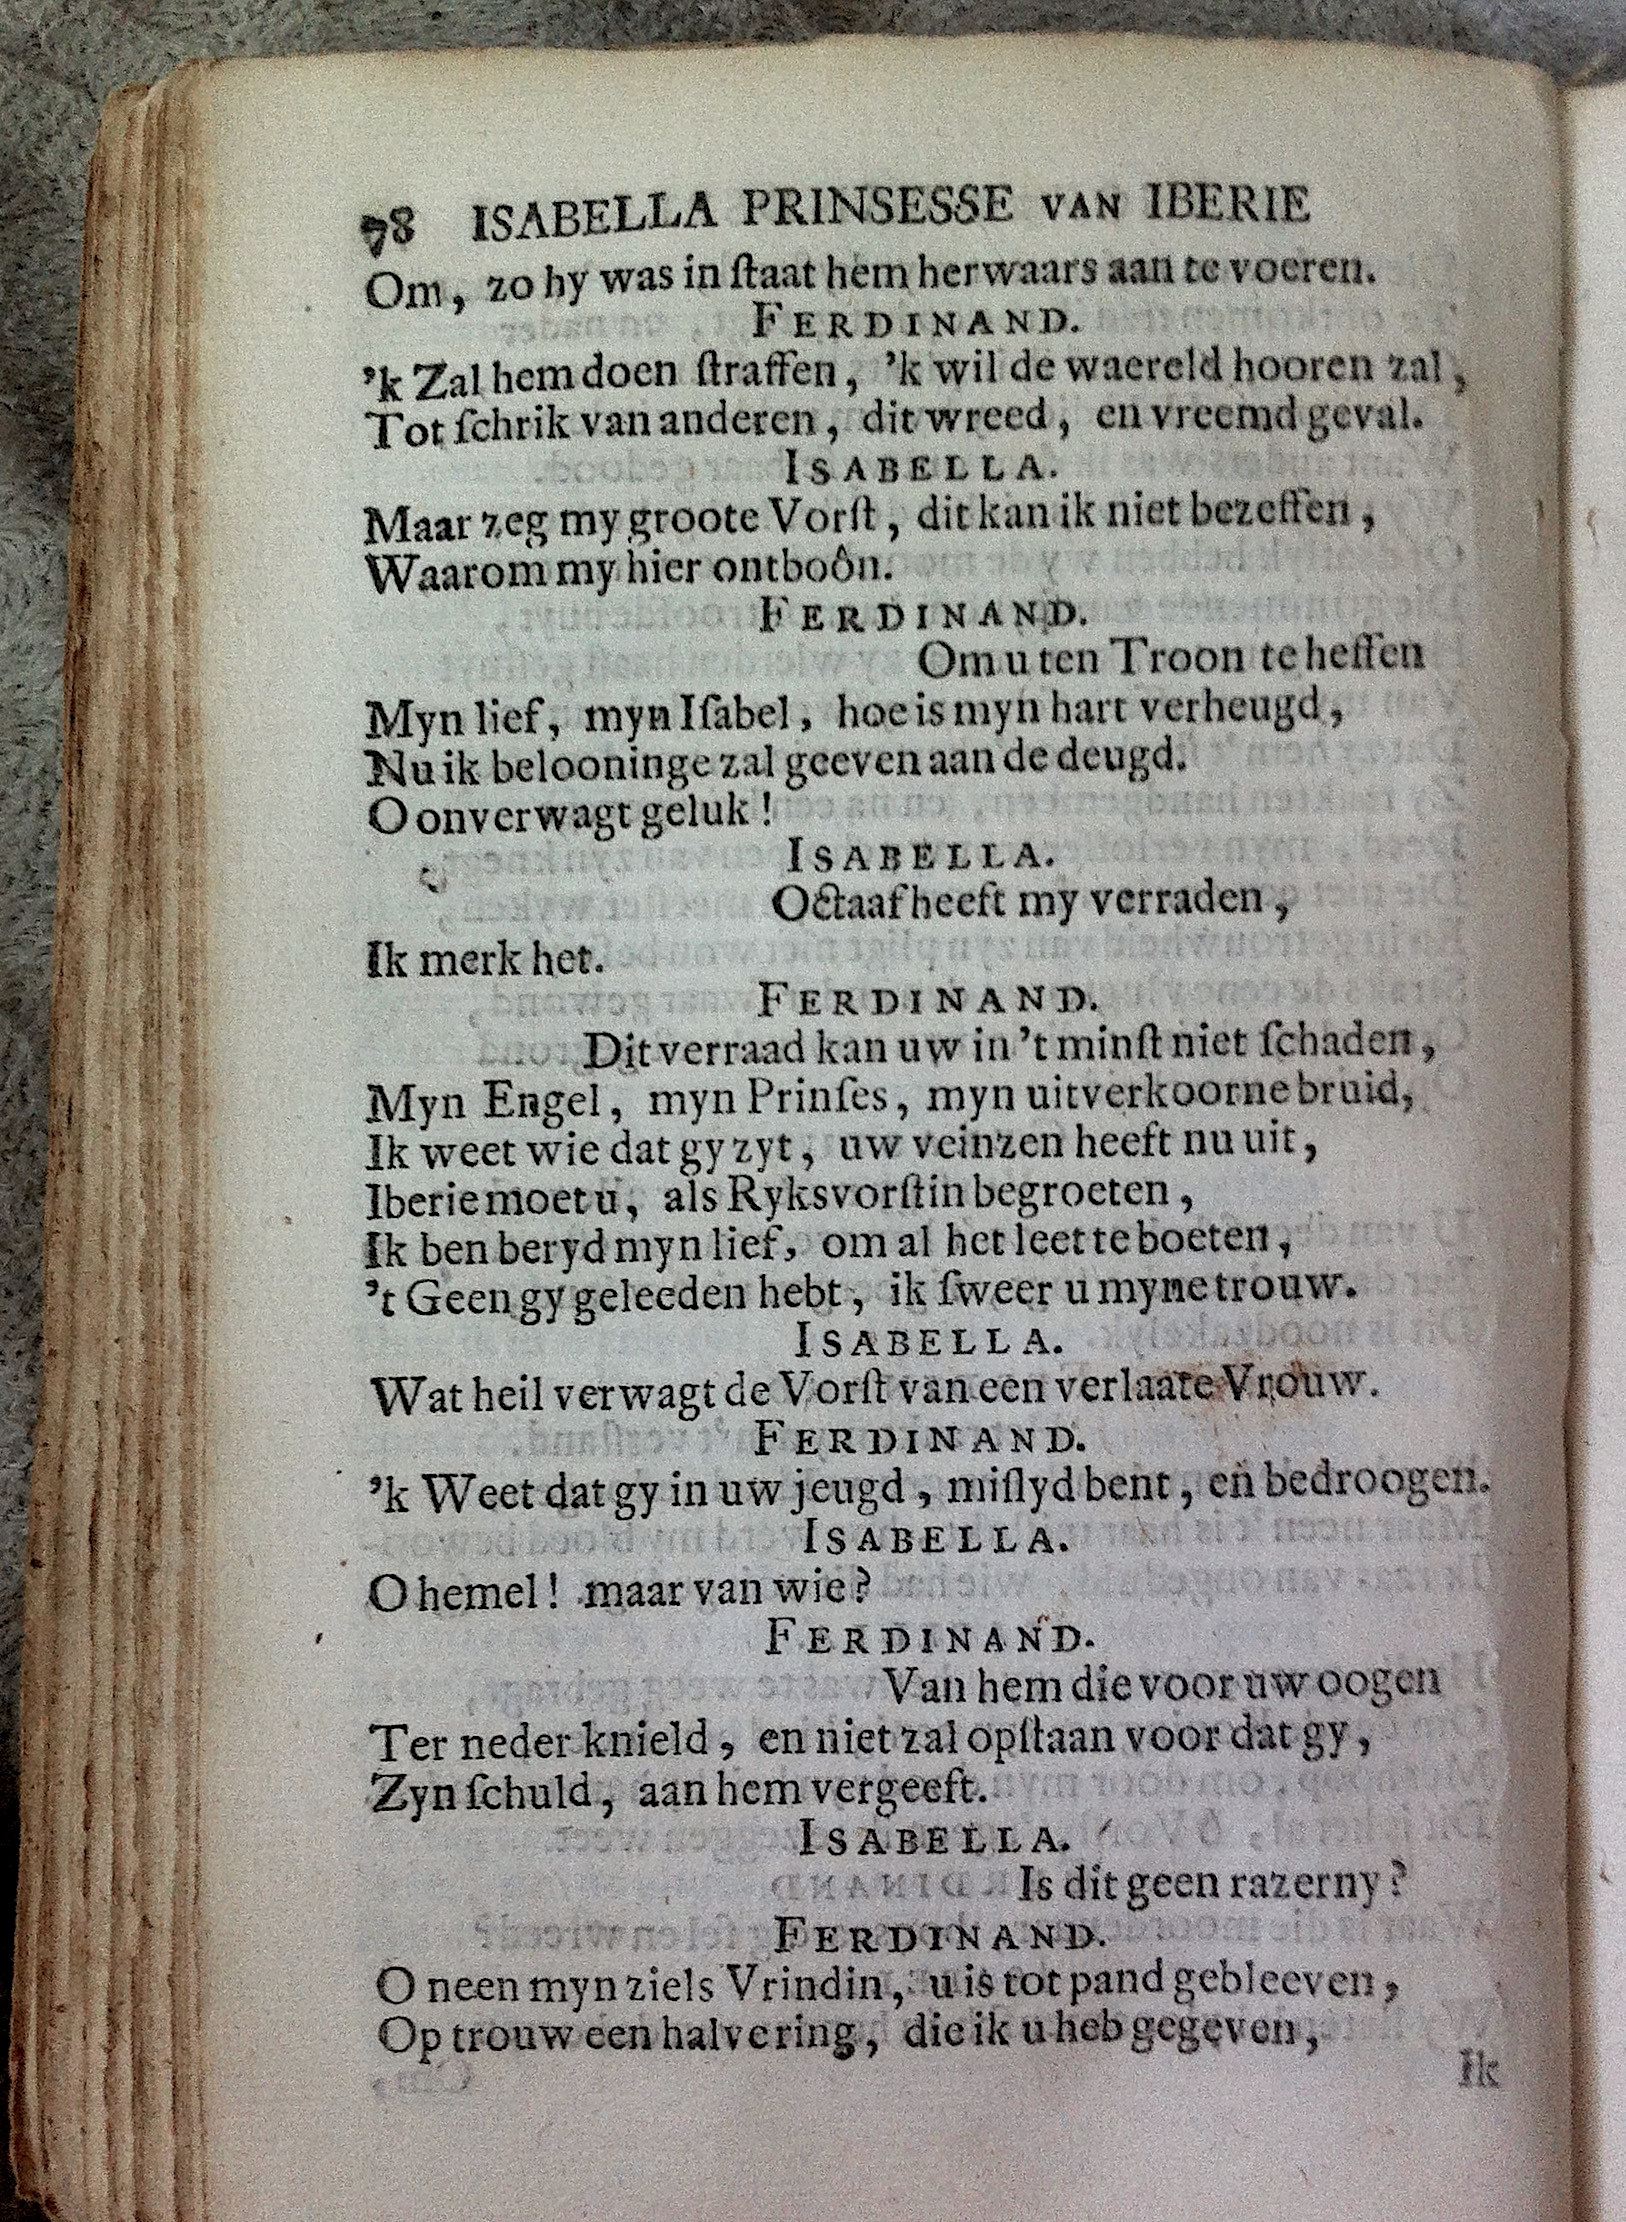 78 ISABELLA PRINSESSE VAN IBERIE
Om, zo hy was in ſtaat hem herwaars aan te voeren.
FERDINAND.
’k Zal hem doen ſtraffen, ’k wil de waereld hooren zal,
Tot ſchrik van anderen, dit wreed, en vreemd geval.
ISABELLA.
Maar zeg my groote Vorſt, dit kan ik niet bezeffen,
Waarom my hier ontboôn.
FERDINAND.
Om u ten Troon te heffen
Myn lief, myn Iſabel, hoe is myn hart verheugd,
Nu ik belooninge zal geeven aan de deugd.
O onverwagt geluk!
ISABELLA.
Octaaf heeft my verraden,
Ik merk het.
FERDINAND.
Dit verraad kan uw in ’t minſt niet ſchaden,
Myn Engel, myn Prinſes, myn uitverkoorne bruid,
Ik weet wie dat gy zyt, uw veinzen heeft nu uit,
Iberie moet u, als Ryksvorſtin begroeten,
Ik ben beryd myn lief, om al het leet te boeten,
’t Geen gy geleeden hebt, ik ſweer u myne trouw.
ISABELLA.
Wat heil verwagt de Vorſt van een verlaate Vrouw.
FERDINAND.
’k Weet dat gy in uw jeugd, miſlyd bent, en bedroogen.
ISABELLA.
O hemel! maar van wie?
FERDINAND.
Van hem die voor uw oogen
Ter neder knield, en niet zal opſtaan voor dat gy,
Zyn ſchuld, aan hem vergeeft.
ISABELLA.
Is dit geen razerny?
FERDINAND.
O neen myn ziels Vrindin, u is tot pand gebleeven,
Op trouw een halve ring, die ik u heb gegeven,
Ik